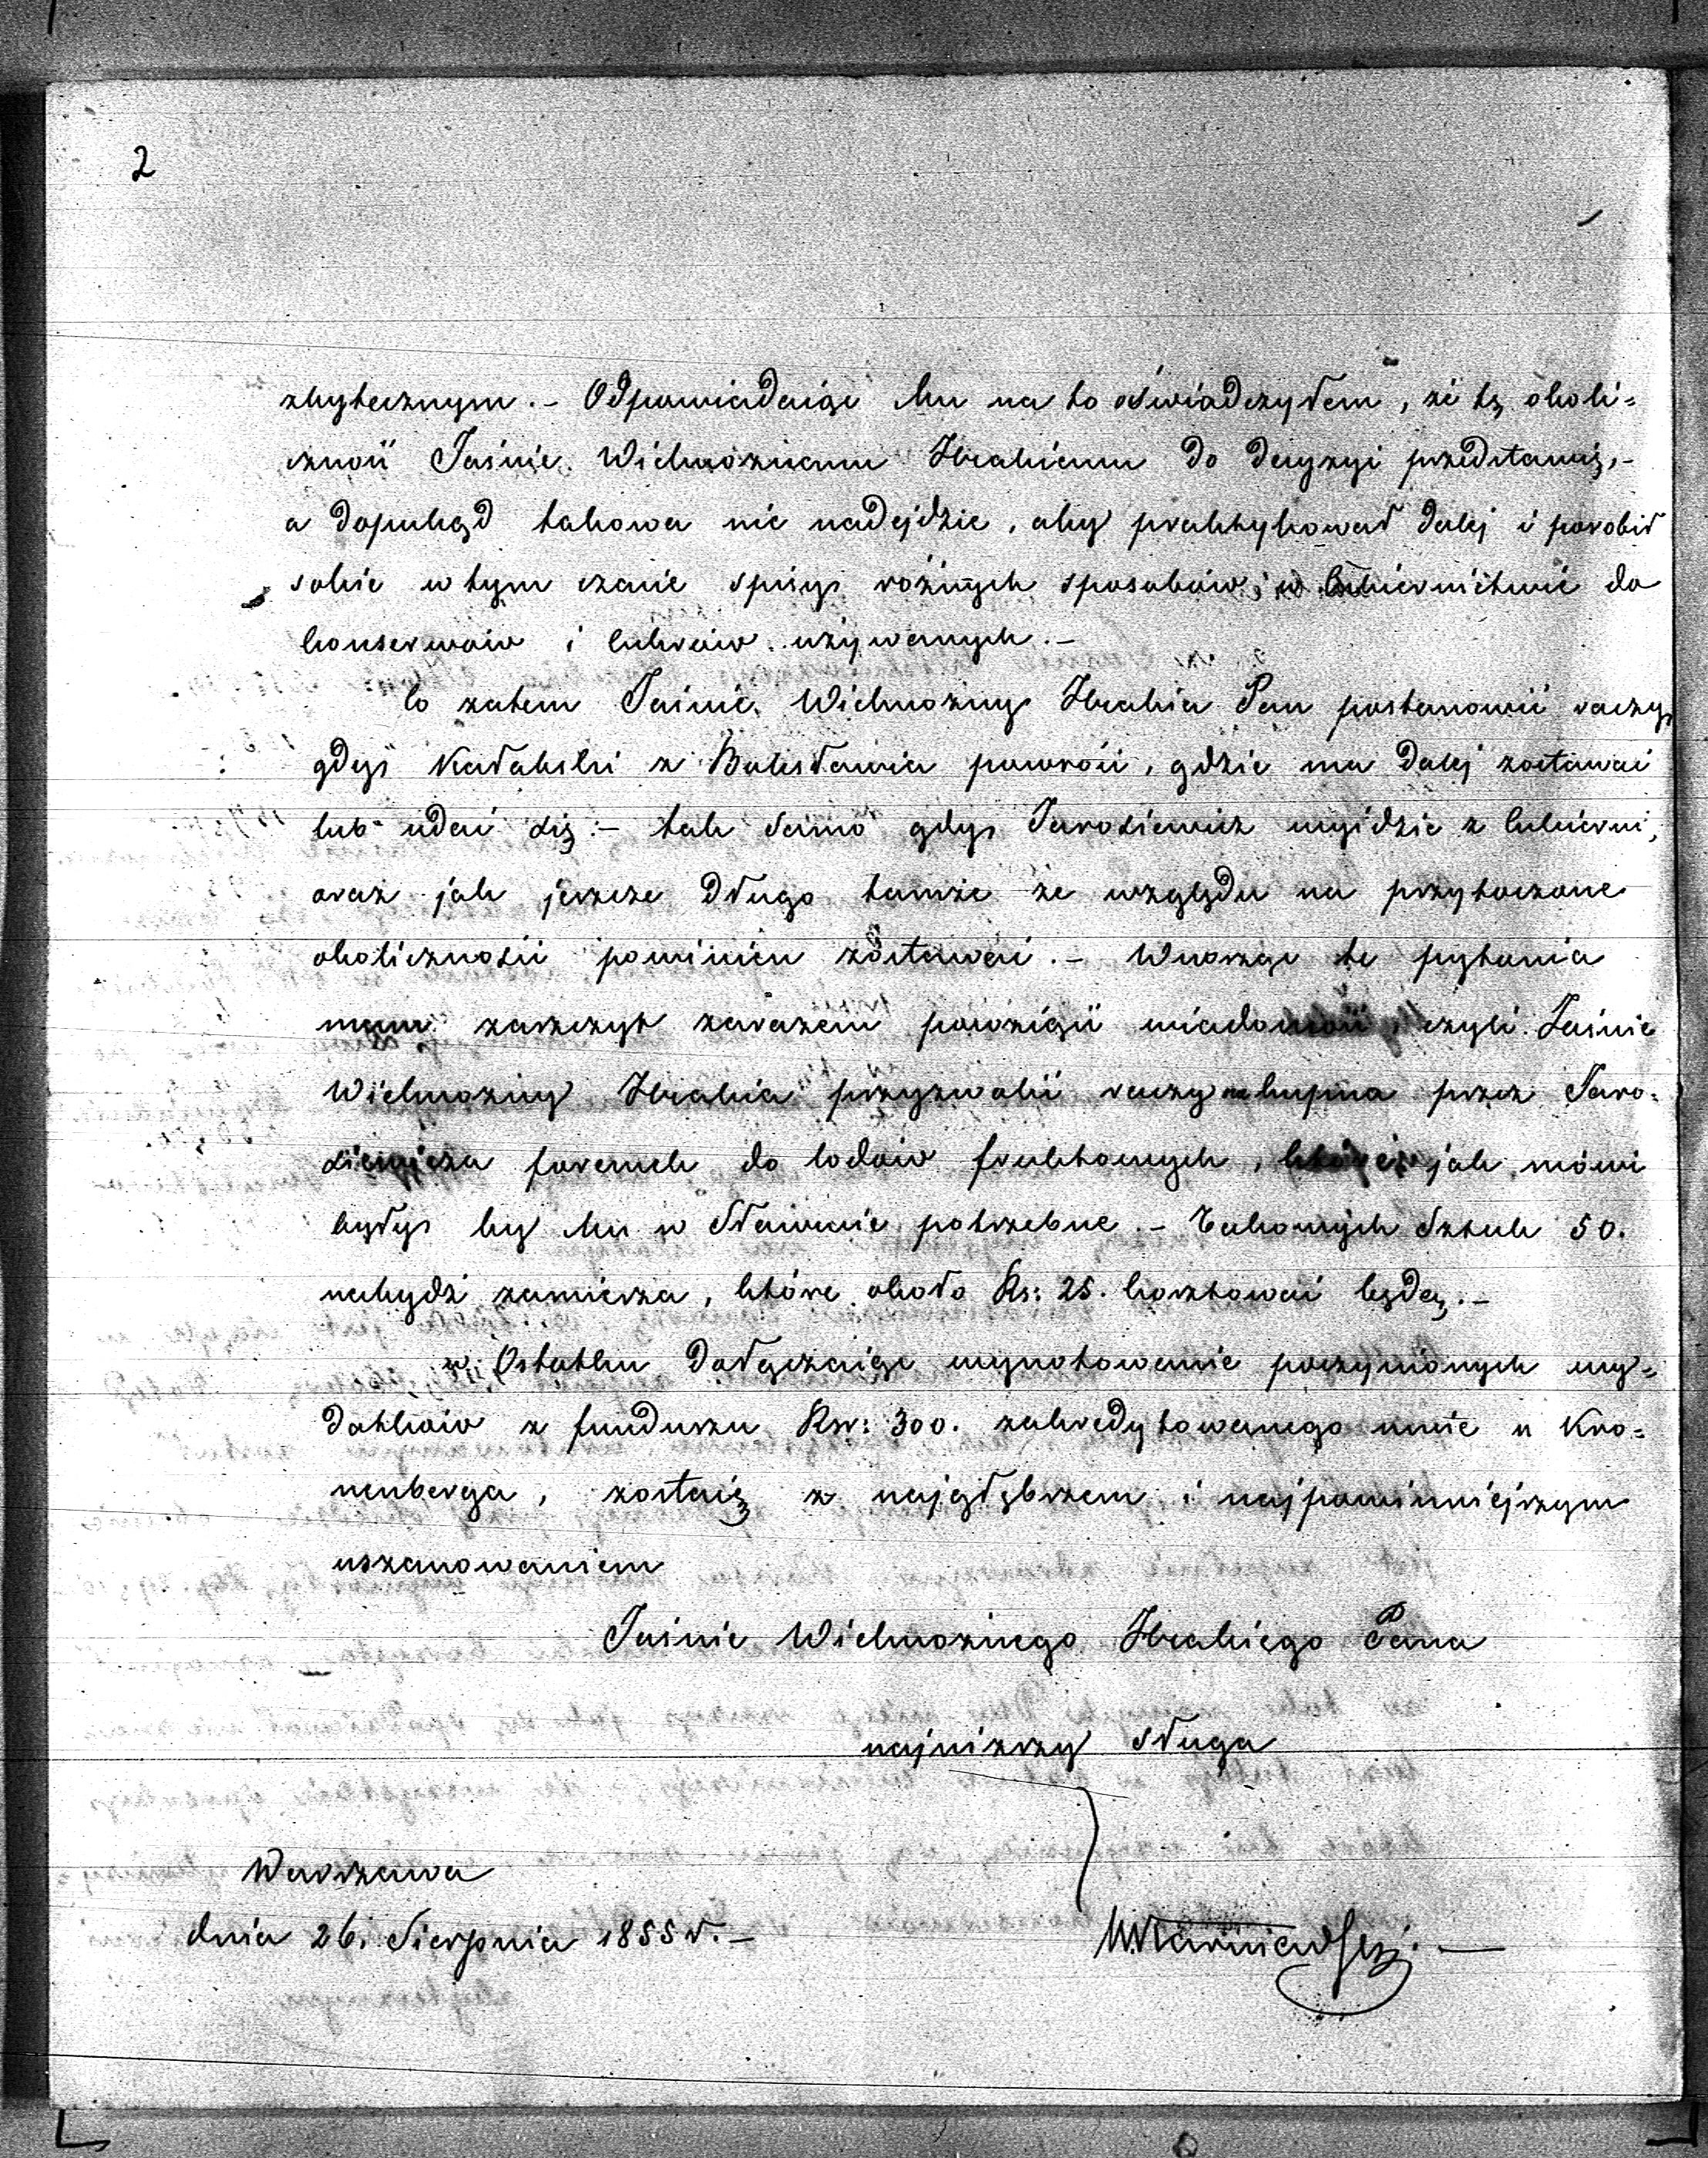 2
zbytecznym. – Odpowiadaiąc Mu na to oświadczyłem, że tę okoli=
czność Jaśnie Wielmożnemu Hrabiemu do decyzyi przedstawię, –
a dopukąd takowa nie nadejdzie, aby praktykował dalej i porobił
sobie w tym czasie spisy różnych sposobów, w Cukiernictwie do
konserwów i cukrów używanych. –
Co zatem Jaśnie Wielmożny Hrabia Pan postanowić raczy,
gdyś Kadalski z Bolesławia powróci, gdzie ma dalej zostawać
lub udać się: – tak samo gdy Jarosiewicz wyidzie z cukierni,
oraz jak jeszcze długo tamże ze względu na przytoczone
okoliczności powinien zostawać. – Wnosząc te pytania
mam zaszczyt zarazem powziąść wiadomość, czyli Jaśnie
Wielmożny Hrabia przyzwolić raczy na kupna przez Jaro=
siewicza foremek do lodów fruktowych, które jak mówi
byłyby Mu w Sławucie potrzebne. – Takowych Sztuk 50.
nabydź zamierza, które około Rs: 25. kosztować będą. –
w Ostatku Dołączaiąc wynotowanie poczynionych wy=
datków z funduszu Rsr: 300. zakredytowanego mnie u Kro=
nenberga, zostaię z najgłębszem i najpowinniejszym
uszanowaniem
Jaśnie Wielmożnego Hrabiego Pana
najniższy sługa
Warszawa
dnia 26. Sierpnia 1855 r. –